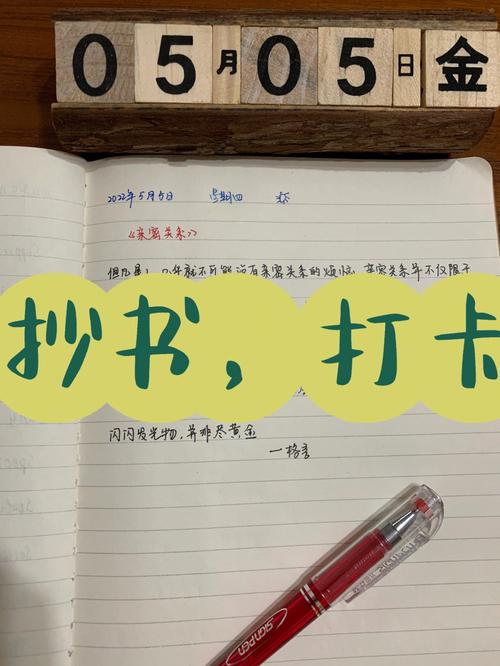 05月05日金
2022年5月5日 星期四
《亲密关系》
但凡是人,就不可能没有亲密关系的烦恼,亲密关系并不仅限于
抄书,打卡
闪闪发光物,并非尽黄金
一格言
SIGN PEN